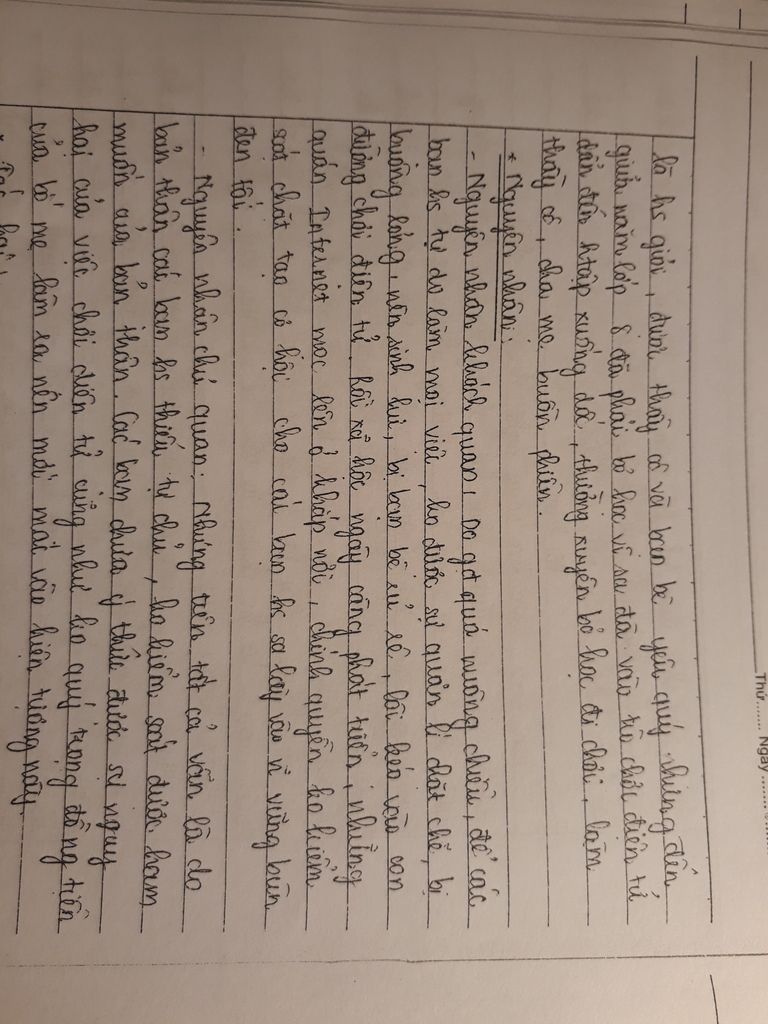 Thứ....... Ngày........
là hs giỏi, được thầy cô và bạn bè yêu quý. nhưng đến
giữa năm lớp 8 đã phải bỏ học vì sa đà vào trò chơi điện tử
dẫn đến htập xuống dốc, thường xuyên bỏ học đi chơi, làm
thầy cô, cha mẹ buồn phiền.
* Nguyên nhân:
- Nguyên nhân khách quan: Do gđ quá nuông chiều, để các
bạn hs tự do làm mọi việc, ko được sự quản lí chặt chẽ, bị
buông lỏng, nên sinh hư, bị bạn bè rủ rê, lôi kéo vào con
đường chơi điện tử. hồi xã hộc ngày càng phát triển, những
quán Internet mọc lên ở khắp nơi, chính quyền ko kiểm
soát chặt tạo cơ hội cho các bạn hs sa lầy vào vũng bùn
đen tối.
- Nguyên nhân chủ quan: Nhưng trên tất cả vẫn là do
bản thân các bạn hs thiếu tự chủ, ko kiểm soát được ham
muốn của bản thân. Các bạn chưa ý thức được sự nguy
hại của việc chơi điện tử cũng như ko quý trọng đồng tiền
của bố mẹ làm ra nên mới mắt vào hiện tượng này.
* Tác hại: